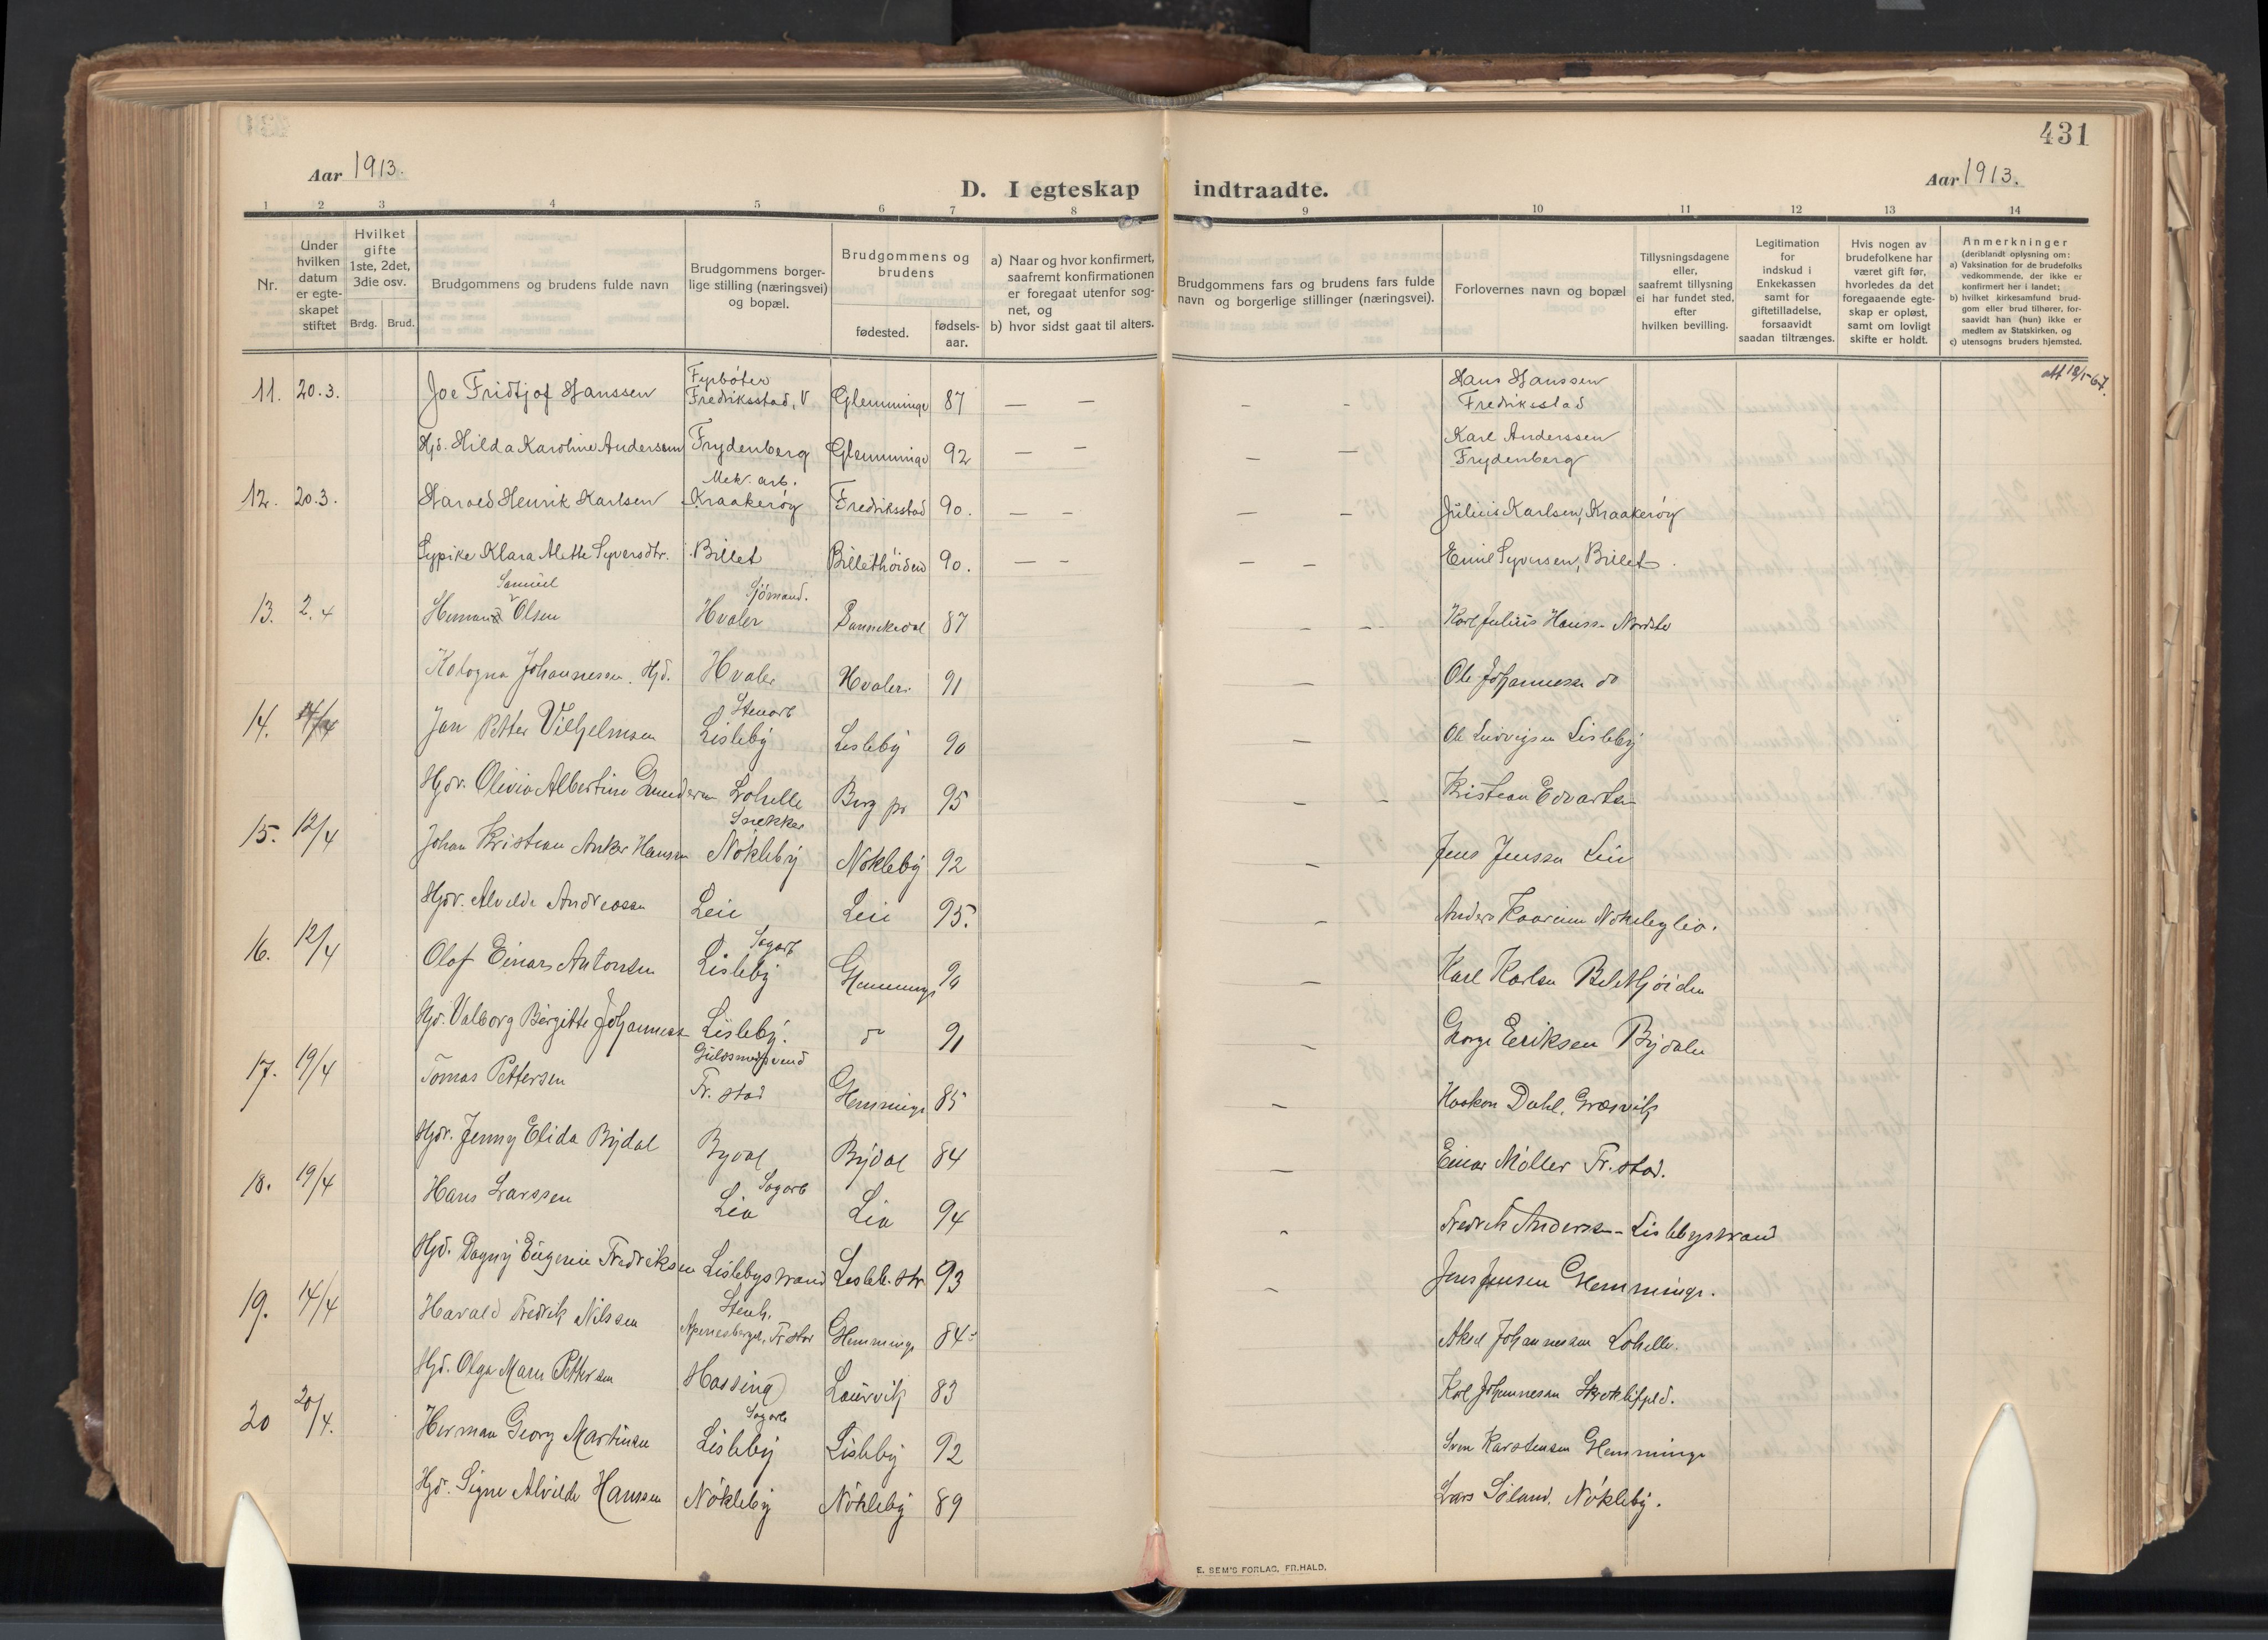 431
Aar 1913.
D. I egteskap indtraadte.
Aar 1913.
1 2 3 4 5 6 7 8 9 10 11 12 13 14
Nr.
Under hvilken datum er egteskapet stiftet
Hvilket gifte 1ste, 2det, 3die osv.
Brdg. Brud.
Brudgommens og brudens fulde navn
Brudgommens borgerlige stilling (næringsvei) og bopæl.
Brudgommens og brudens
fødested.
fødselsaar.
a) Naar og hvor konfirmert, saafremt konfirmationen er foregaat utenfor sognet, og
b) hvor sidst gaat til alters.
Brudgommens fars og brudens fars fulde navn og borgerlige stillinger (næringsvei).
Forlovernes navn og bopæl
Tillysningsdagene eller, saafremt tillysning ei har fundet sted, efter hvilken bevilling.
Legitimation for indskud i Enkekassen samt for giftetilladelse, forsaavidt saadan tiltrænges.
Hvis nogen av brudefolkene har været gift før, hvorledes da det foregaaende egteskap er opløst, samt om lovligt skifte er holdt.
Anmerkninger
(deriblandt oplysning om:
a) Vaksination for de brudefolks vedkommende, der ikke er konfirmert her i landet;
b) hvilket kirkesamfund brudgom eller brud tilhører, forsaavidt han (hun) ikke er medlem av Statskirken, og
c) utensogns bruders hjemsted.
Fyrbøter Hans Hanssen
11. 20.3. Joe Fridtjof Hanssen Fredriksstad, V Glemminge 87 — — - - Fredriksstad
Karl Anderssen
Hjd. Hilda Karoline Anderssen Frydenberg Glemminge 92 — - — — Frydenberg
Mek. arb.
12. 20.3. Harald Henrik Karlsen Kraakerøy Fredriksstad 90. — — — - Julius Karlsen, Kraakerøy
Sypike Klara Alette Syversdtr. Billet Billethöiden 90. — - — - Emil Syversen, Billet.
Samuel Sjömand.
13. 2.4 Herman Olsen Hvaler 87 - - Karl Julius Hanss-
Johannessen. Hjd. Hvaler Hvaler. 91 — Ole Johannessen do
Stenarb
14. Jan Petter Vilhjelmsen Lisleby Lisleby 90 — Ole Ludvigsen Lisleby
Hjdr. Olivia Albertine Lahelle Berg pr 95 - - Kristian Edvartsen
Snekker
15. 12/4 Johan Kristian Anker Hansen Nökleby Nökleby 92 — Jens Jenssen Leie
Hjdr. Alvilde Andreassen Leie Leie 95. - Anders Kaarein Nöklebylia.
Sagarb
16. 12/4 Olaf Einar Antonsen Lisleby Glemminge 90 — Karl Karlsen Billethöiden
Hjd. Valborg Birgitte Johannessen Lisleby. do 91 - George Eriksen Bydalen
Guldsmedsvend
17. 19/4 Tomas Pettersen Fr. stad Glemminge 85 - Haakon Dahl. Græsvik
Hjdr. Jenny Elida Bydal Bydal Bydal 84 — Einar Møller Fr. stad.
Sagarb
18. 19/4 Hans Larssen Lia Lia 94 - Fredrik Anderssen - Lislebystrand
Hjd. Dagny Eugenie Fredriksen Lislebystrand Lisleb. str 93 - Jens Jensen Glemminge.
Stenh.
19. 14/4 Harald Fredrik Nilssen Apenesberget, Fr.stad Glemminge 84 Aksel Johannessen Lahelle.
Hjd. Olga Marie Pettersen Hassing Laurvik 83 Karl Johannessen
Sagarb
20 20/4. Herman Georg Martinsen Lisleby Lisleby 92 Sven Karstensen Glemminge
Hjd. Signe Alvilde Hanssen Nökleby Nökleby 89 Lars Søland. Nökleby.
E. SEM'S FORLAG, FR.HALD.